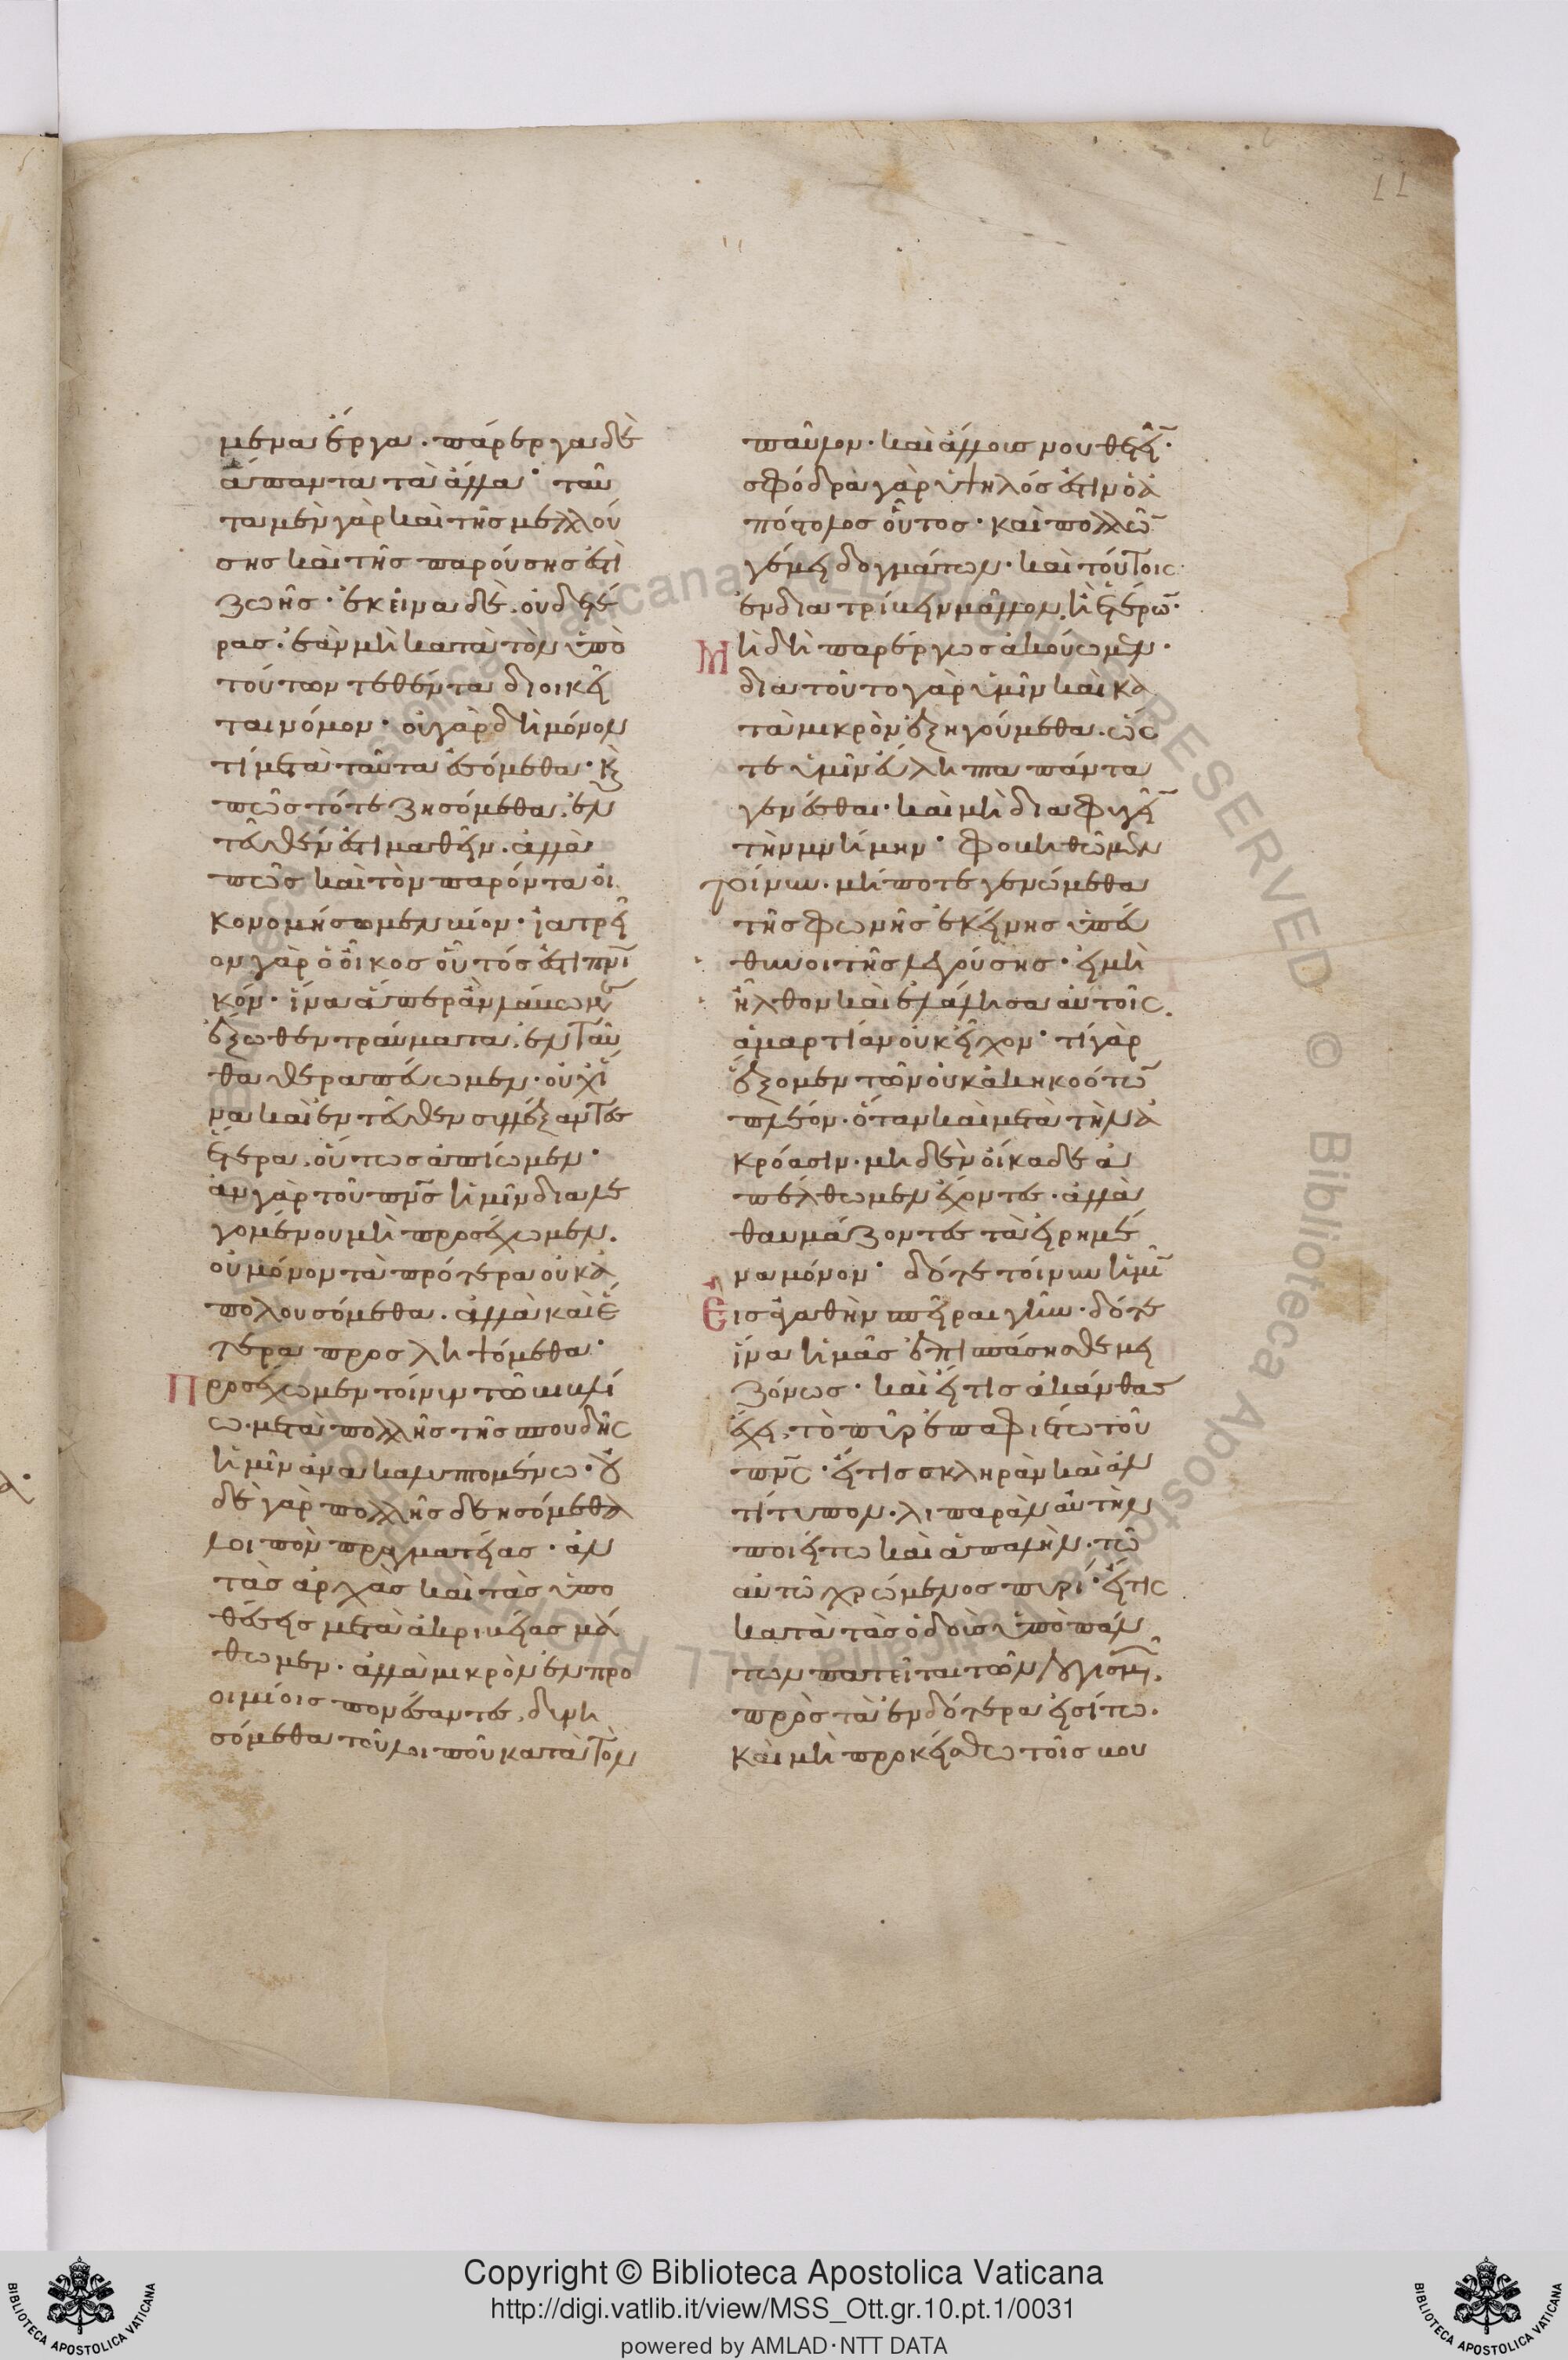 μενα ἔργα. πάρεργα δὲ
ἅπαντα τὰ ἄλλα· ταῦ
τα μὲν γὰρ καὶ τῆς μελλού
σης καὶ τῆς παρούσης ἐστὶ
ζωῆς· ἐκεῖνα δὲ, οὐδετέ
ρας. ἐὰν μὴ κατὰ τὸν ὑπὸ
τούτων τεθέντα διοικῆ
ται νόμον· οὐ γὰρ δὴ μόνον
τί μετὰ ταῦτα ἐσόμεθα· κ
πῶς τότε ζησόμεθα, ἐν
τεῦθέν ἐστι μαθεῖν. ἀλλὰ
πῶς καὶ τὸν παρόντα οἰ
κονομήσωμεν βίον· ἰατρεῖ
ον γὰρ ὁ οἶκος οὗτός ἐστι πνι
κόν· ἵνα ἅπερ ἂν λάβωμεν
ἔξωθεν τραύματα, ἐνταῦ
θα θεραπεύωμεν· οὐχ ἵ
να καὶ ἐντεῦθεν συλλέξαντες
ἕτερα, οὕτως ἀπίωμεν·
ἂν γὰρ τοῦ πνς ἡμῖν διαλε
γομένου μὴ προσέχωμεν.
οὐ μόνον τὰ πρότερα οὐκ ἀ
πολουσόμεθα. ἀλλὰ καὶ ἕ
τερα προσληψόμεθα·
Προσέχωμεν τοίνυν τῶ βιβλί
ω. μετὰ πολλῆς τῆς σπουδῆς
ἡμῖν ἀνακαλυπτομένω· οὐ
δὲ γὰρ πολλῆς δεησόμεθα
λοιπὸν πραγματείας· ἂν
τὰς ἀρχὰς καὶ τὰς ὑπο
θέσεις μετὰ ἀκριβείας μά
θωμεν. ἀλλὰ μικρὸν ἐν προ
οιμίοις πονέσαντες, δυνη
σόμεθα τοῦ λοιποῦ κατὰ τὸν
παῦλον· καὶ ἄλλοις νουθετεῖν·
σφόδρα γὰρ ὑψηλός ἐστιν ὁ ἀ
πόστολος οὗτος· καὶ πολλῶ
γέμει δογμάτων· καὶ τούτοις
ἐνδιατρίβειν μᾶλλον, ἢ ἑτέρω·
Μὴ δὴ παρέργως ἀκούωμεν·
διὰ τοῦτο γὰρ ὑμῖν καὶ κα
τὰ μικρὸν ἐξηγούμεθα. ὥς
τε ὑμῖν εὔληπτα πάντα
γενέσθαι· καὶ μὴ διαφυγεῖ
τὴν μνήμην· φοβηθῶμεν
τοίνυν. μήποτε γενώμεθα
τῆς φωνῆς ἐκείνης ὑπεύ
θυνοι τῆς λεγούσης· εἰ μὴ
ἦλθον καὶ ἐλάλησα αὐτοῖς,
ἁμαρτίαν οὐκ εἶχον· τί γὰρ
ἕξομεν τῶν οὐκ ἀκηκοότω
πλέον. ὅταν καὶ μετὰ τὴν ἀ
κρόασιν. μηδὲν οἴκαδε ἀ
πέλθωμεν ἔχοντες. ἀλλὰ
θαυμάζοντες τὰ εἰρημέ
να μόνον· δότε τοίνυν ἡμῖ
εἰς ἀγαθὴν σπεῖραι γῆν. δότε
ἵνα ἡμᾶς ἐπισπάσησθε μει
ζόνως· καὶ εἴ τις ἀκάνθας
ἔχει, τὸ πῦρ ἐπαφιέτω τοῦ
πνς· εἴ τις σκληρὰν καὶ ἀν
τίτυπον. λιπαρὰν αὐτὴν
ποιείτω καὶ ἁπαλὴν. τῶ
αὐτῶ χρώμενος πυρί· εἴ τις
κατὰ τὰς ὁδοὺς ὑπὸ πάν
των πατεῖται τῶν λογισμῶν,
πρὸς τὰ ἐνδότερα εἰσίτω.
καὶ μὴ προκείσθω τοῖς βου
Copyright © Biblioteca Apostolica Vaticana
http://digi.vatlib.it/view/MSS_Ott.gr.10.pt.1/0031
powered by AMLAD·NTT DATA
BIBLIOTECA APOSTOLICA VATICANA
BIBLIOTECA APOSTOLICA VATICANA